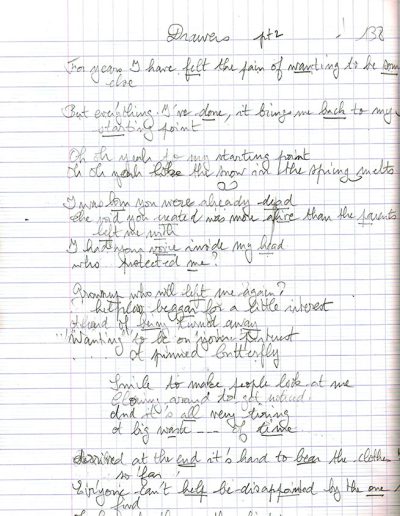 Drawers pt2 ! 138
For years I have felt the pain of wanting to be som
else
But everything I've done, it brings me back to my
starting point
Oh oh yeah to my starting point
Oh oh yeah like the snow in the spring melts
I was born you were already dead
the void you created was more alive than the parents
left me with
I had your voice inside my head
who protected me?
Grownup who will lift me again?
helpless beggar for a little interest
of being turned away
"Wanting" to be on your
A pinned butterfly
Smile to make people look at me
Clowning around to get noticed
And it's all very tiring
A big waste --- of time
Arrived at the end it's hard to bear the clothes
so far!
Everyone can't help be disappointed by the one
find